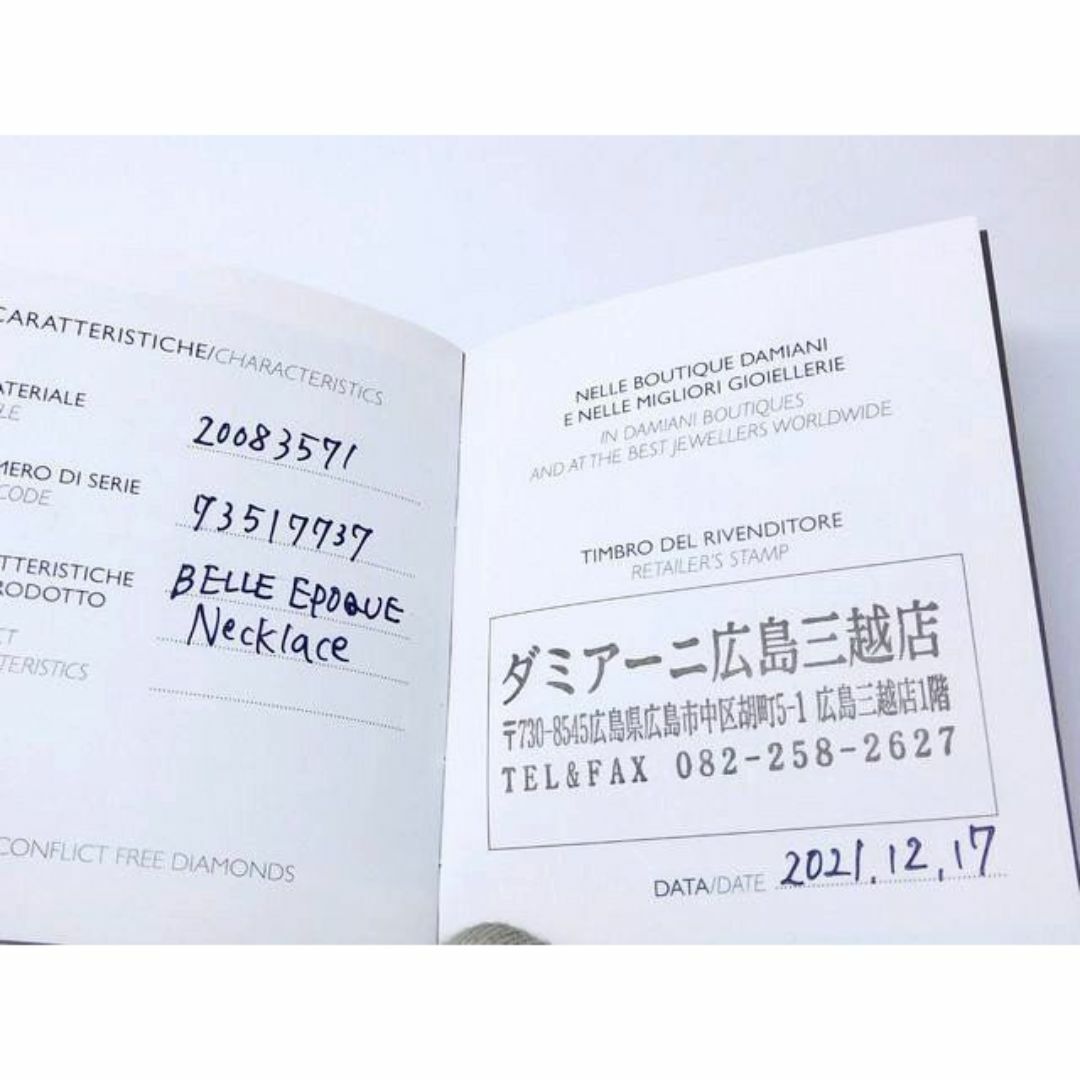 CARATTERISTICHE/CHARACTERISTICS
20083571
DI SERIE
CODE
73517737
BELLE EPOQUE
Necklace
CONFLICT FREE DIAMONDS
NELLE BOUTIQUE DAMIANI
E NELLE MIGLIORI GIOIELLERIE
IN DAMIANI BOUTIQUES
AND AT THE BEST JEWELLERS WORLDWIDE
TIMBRO DEL RIVENDITORE
RETAILER'S STAMP
ダミアーニ広島三越店
〒730-8545広島県広島市中区胡町5-1 広島三越店1階
TEL&FAX 082-258-2627
DATA/DATE 2021.12.17